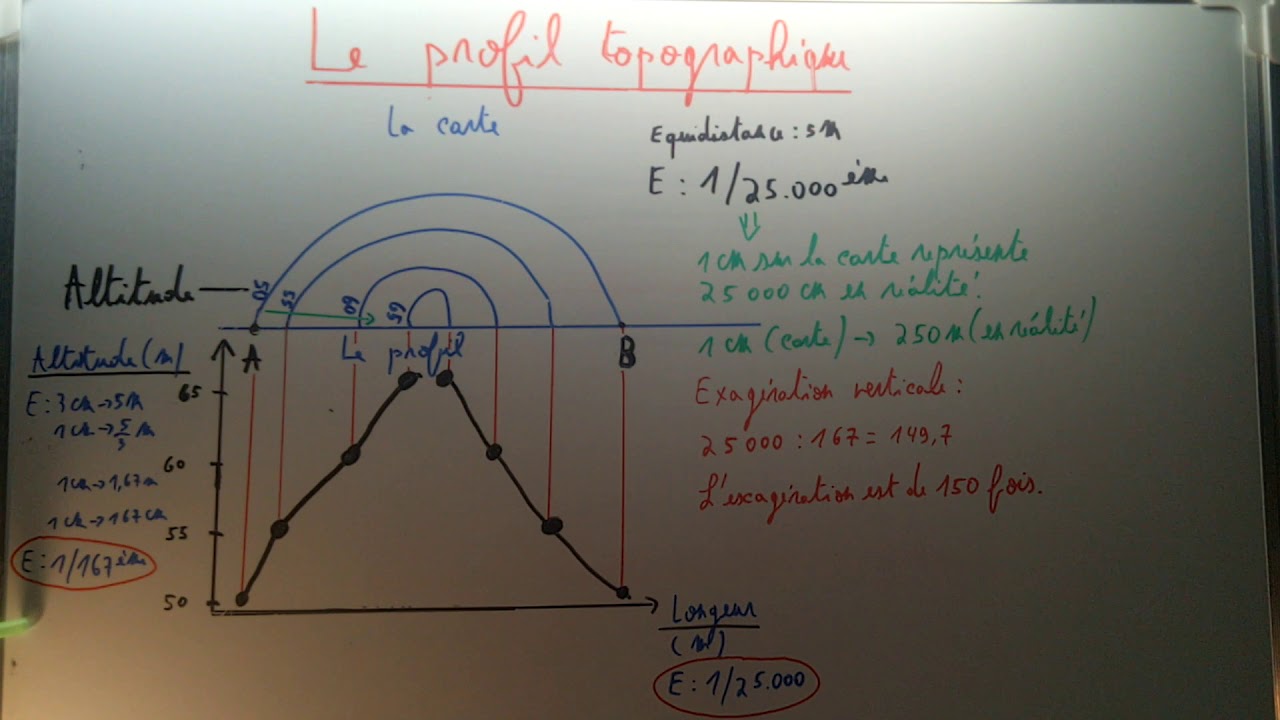 Le profil topographique
La carte
Equidistance : 5 m
E : 1/25.000 ème
⇓
1 cm sur la carte représente
25 000 cm en réalité.
1 cm (carte) → 250 m (en réalité)
Altitude
50 55 60 65
A Le profil B
Altitude (m)
E : 3 cm → 5 m
1 cm → 5/3 m
1 cm → 1,67 m
1 cm → 167 cm
E : 1/167 ème
65
60
55
50
Exagération verticale :
25 000 : 167 = 149,7
L'exagération est de 150 fois.
Longeur
(m)
E : 1/25.000